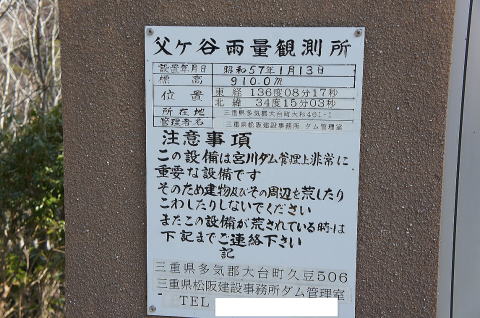 父ケ谷雨量観測所
設置年月日 昭和57年1月13日
標高 910.0m
位置 東経 136度08分17秒
北緯 34度15分03秒
所在地 三重県多気郡大台町大杉461-1
管理者名 三重県松阪建設事務所 ダム管理室
注意事項
この設備は宮川ダム管理上非常に
重要な設備です
そのため建物及びその周辺を荒したり
こわしたりしないでください
またこの設備が荒されている時は
下記までご連絡下さい
記
三重県多気郡大台町久豆506
三重県松阪建設事務所ダム管理室
TEL